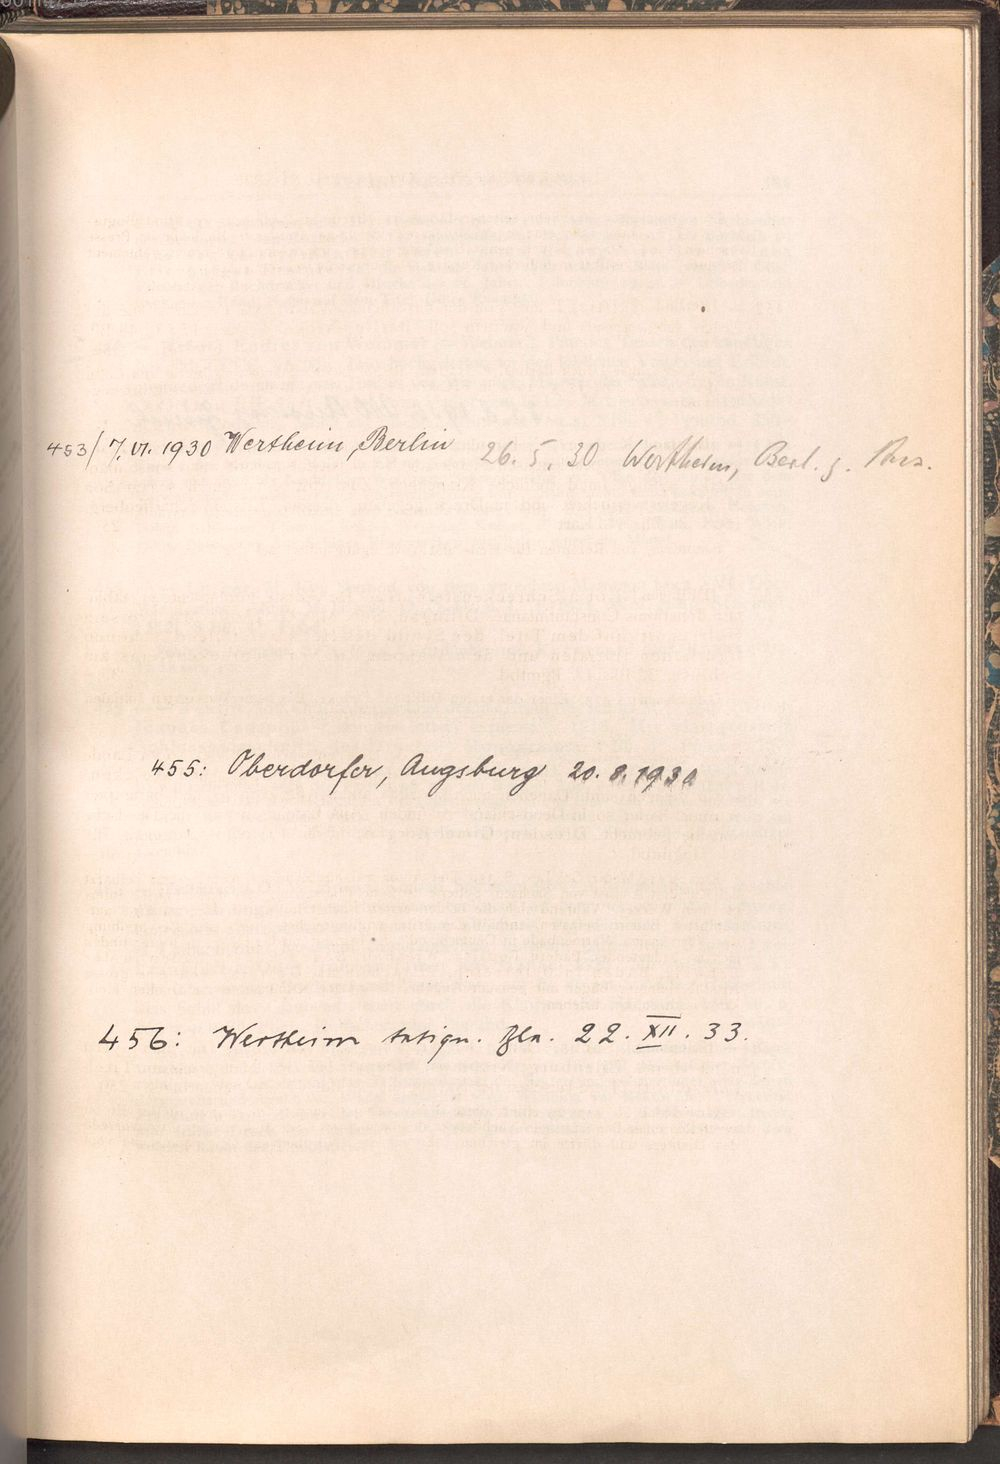 453/ 7.VI.1930 Wertheim, Berlin 26.5.30 Wertheim, Berl. z.
455: Oberdorfer, Augsburg 20.8.1930
456: Wertheim antiqu. Bln. 22.XII.33.